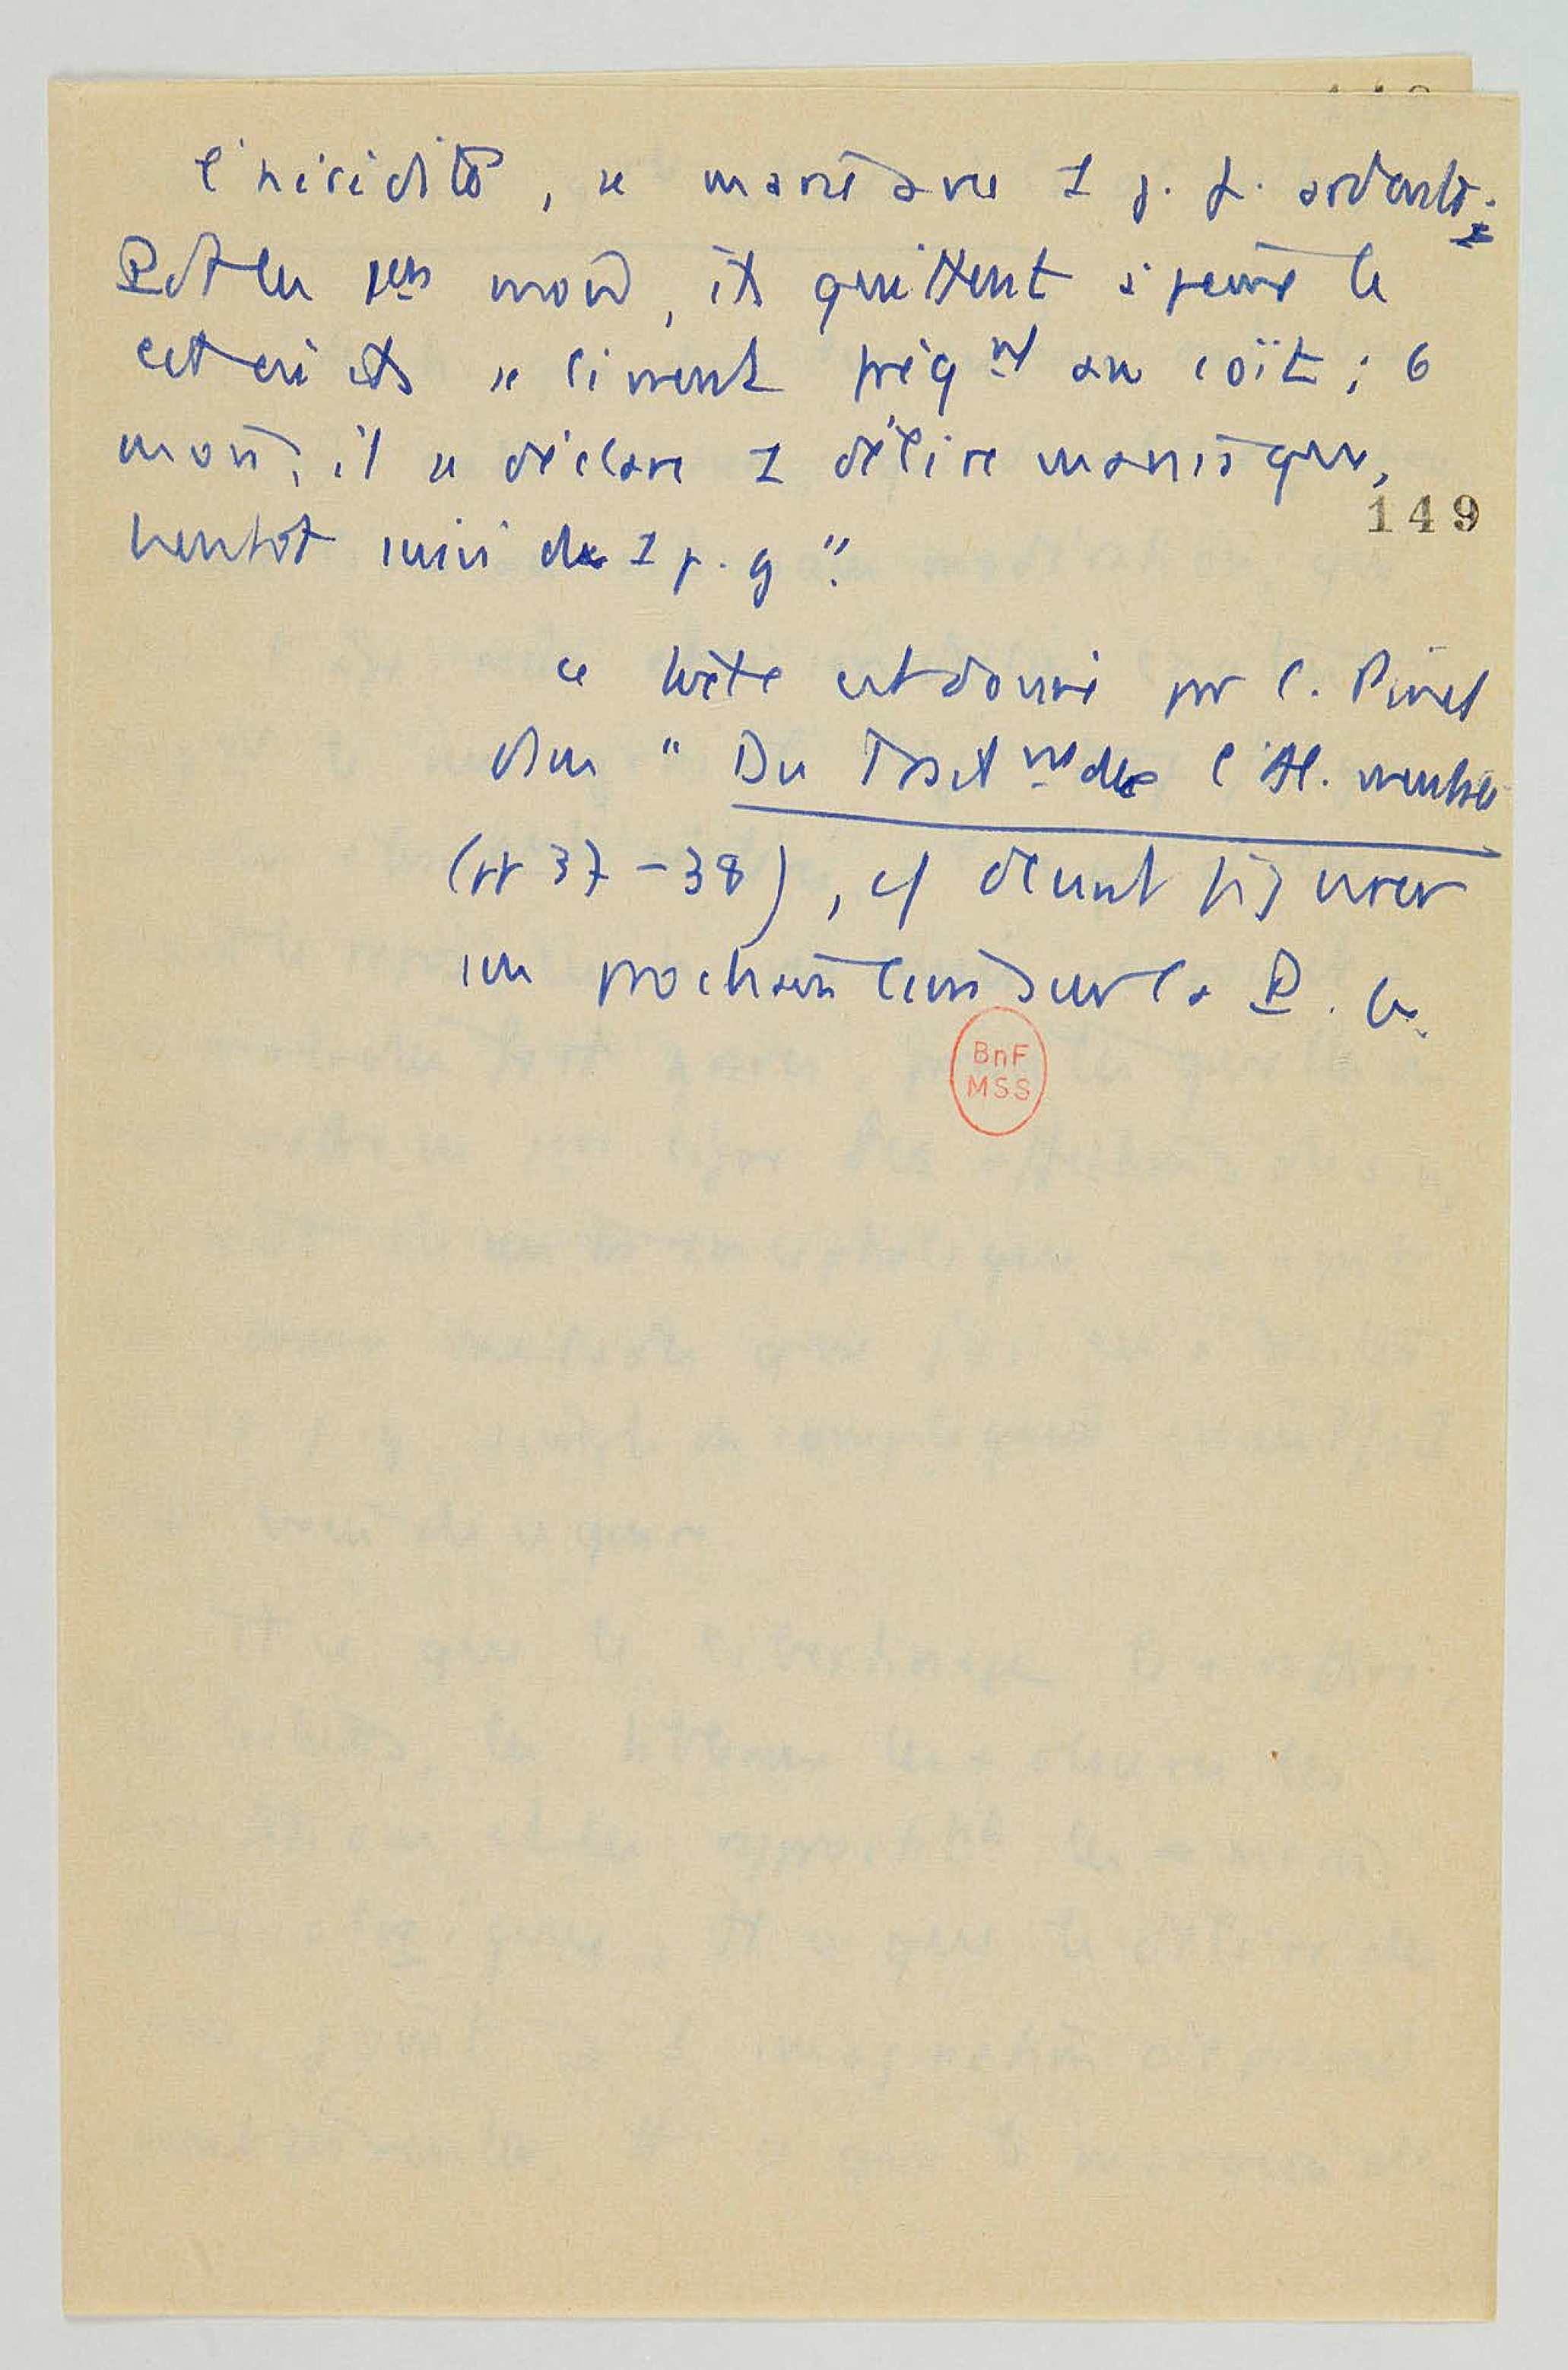 l'hérédité, se marie avec 1 j. f. ardente.
Pdt les 1ers mois, ils quittent à peine le
lit et se livrent fréqnt au coït ; 6
mois, il se déclare 1 délire maniaque,
149
bientôt suivi de 1 p. g".
Ce texte est donné par C. Pinel
dans "Du Traitnt de l'Al. mentale
(pp 37-38), et devant figurer
un prochain sur la P. G.
BnF
MSS